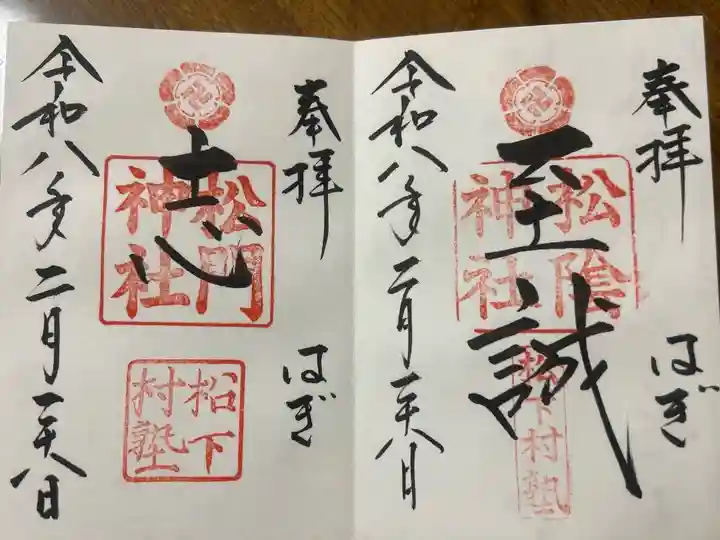 奉拝
はぎ
至誠
松陰
神社
松下村塾
令和八年二月二十八日
奉拝
はぎ
志
松門
神社
松下
村塾
令和八年二月二十八日